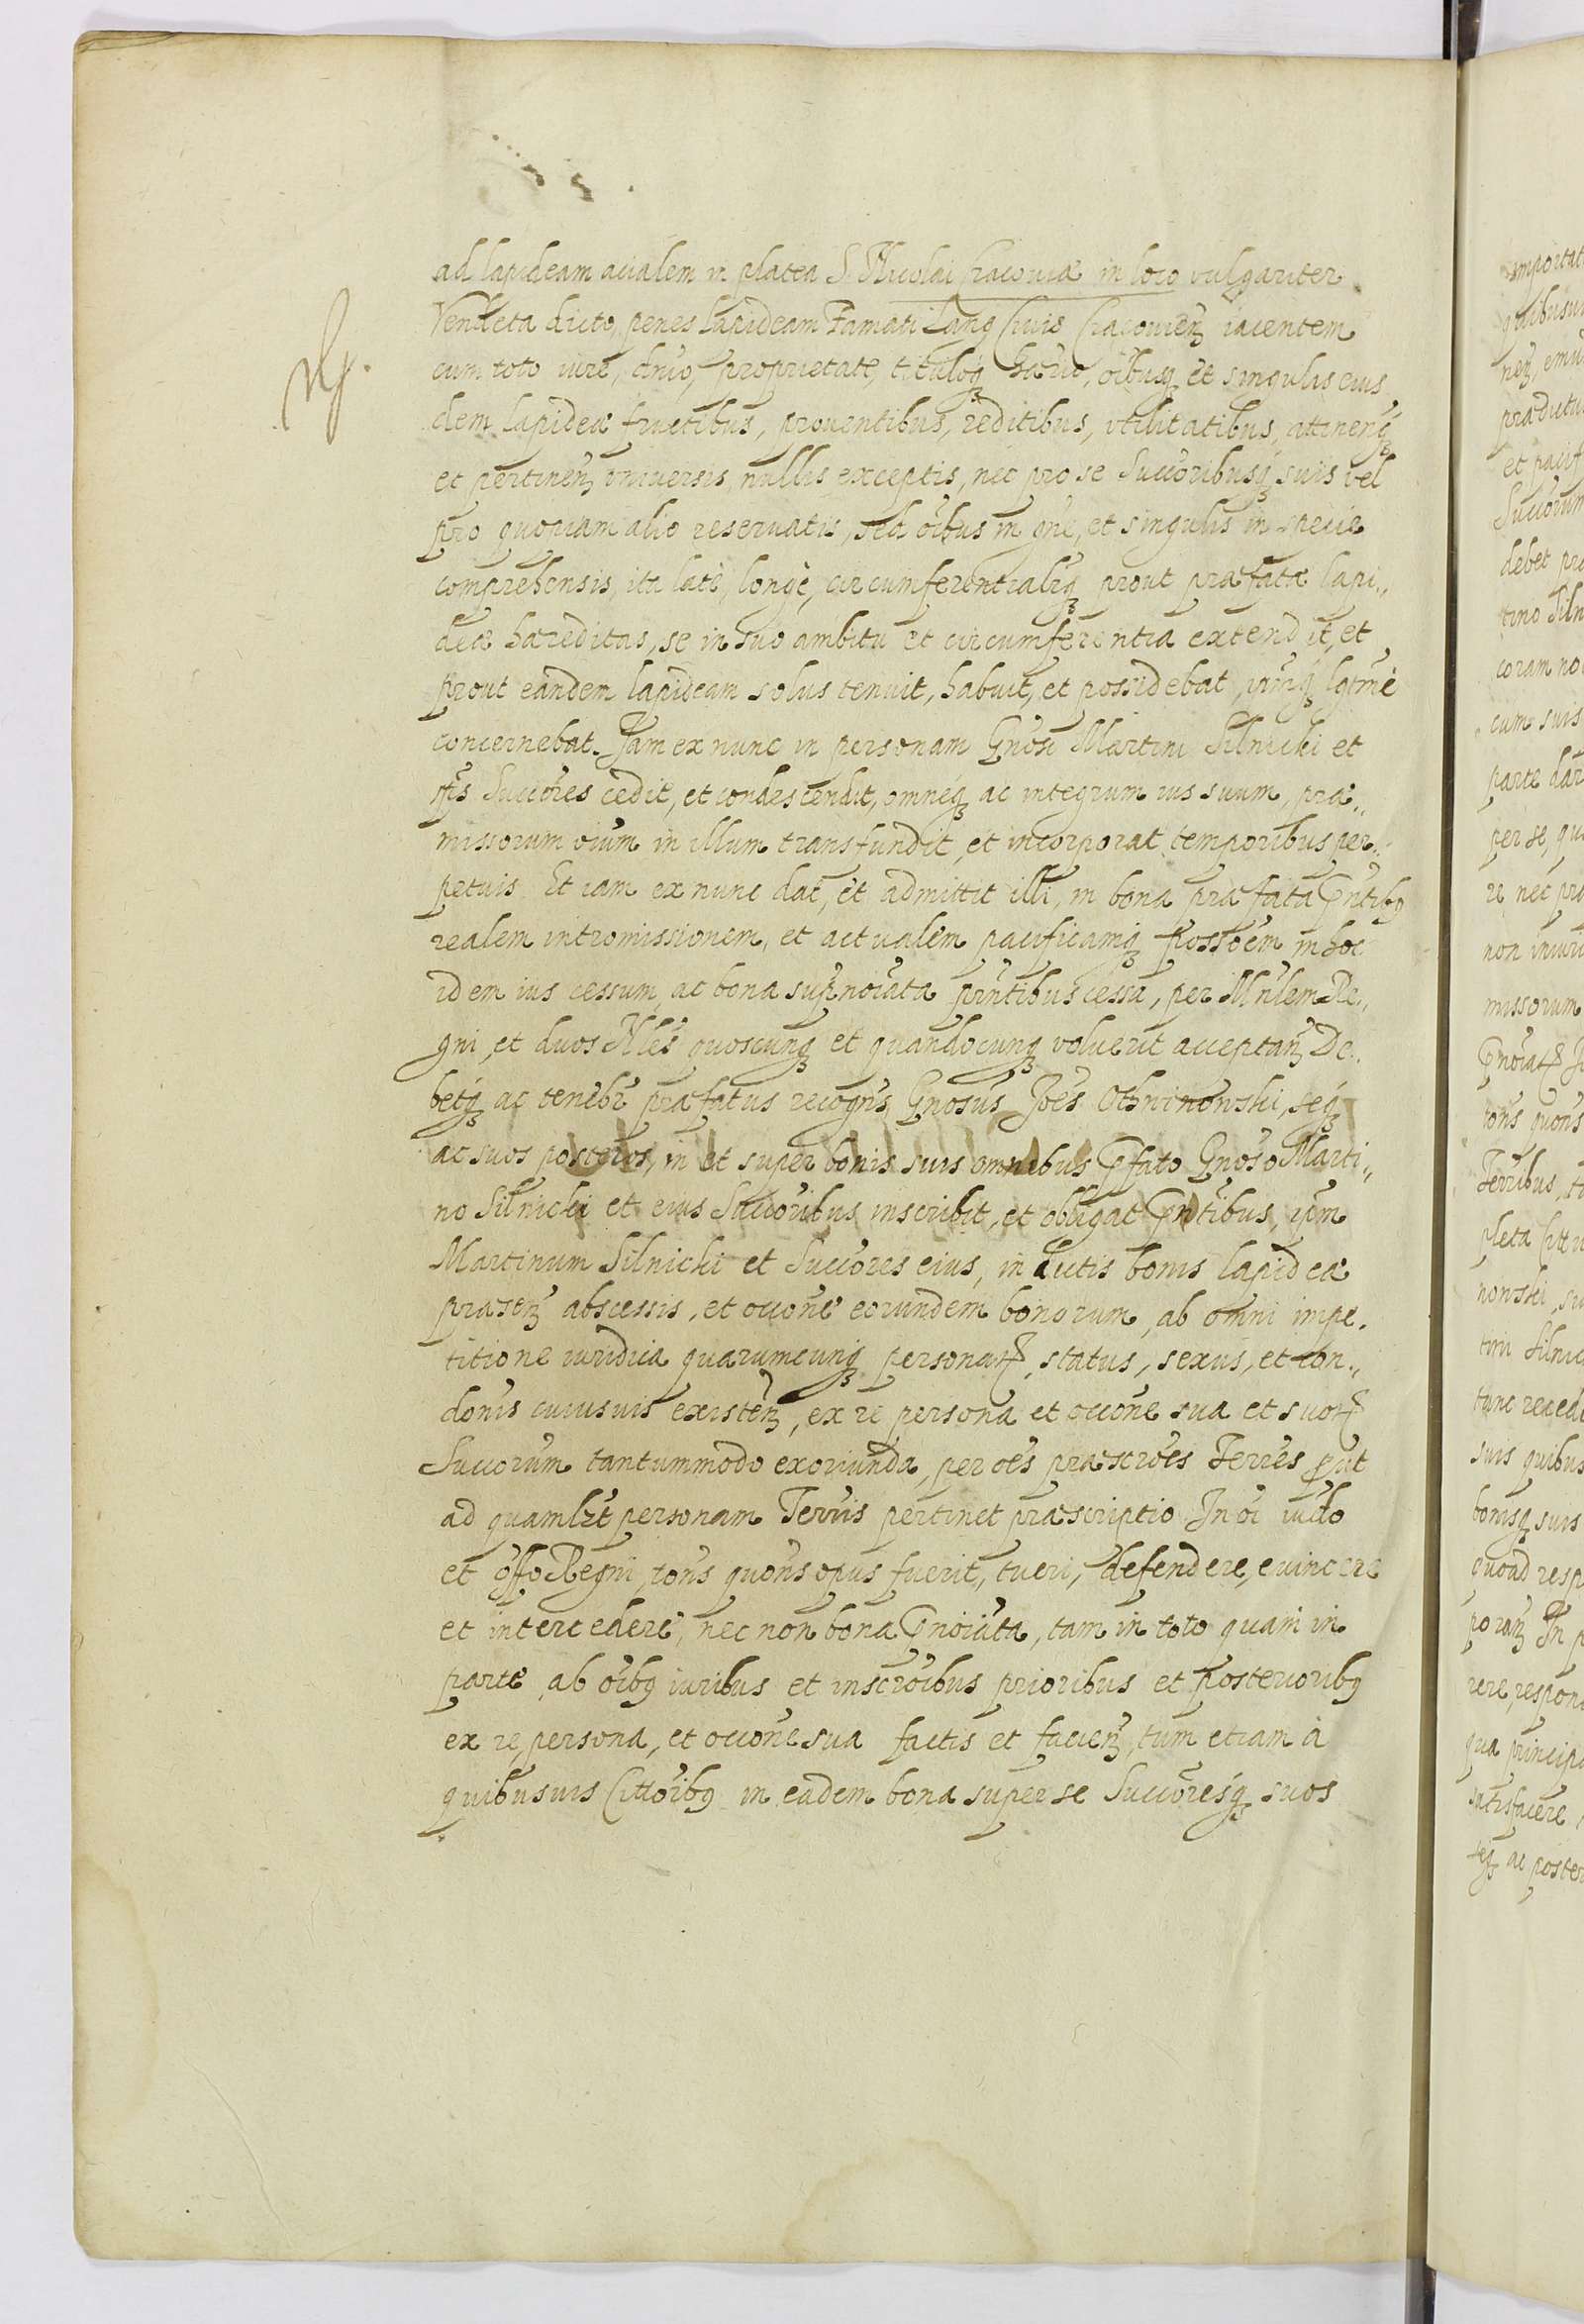 ad lapideam acialem in platea S. Nicolai Cracouiæ in loco vulgariter
Vendeta dicto, penes lapideam Famati Lang Ciuis Cracouien̄ iacentem
Ng.
cum toto iure, dn̄io, proprietate, tituloq3 hær̄io, oībusq3 et singulis eius
dem lapideæ fructibus, prouentibus, reditibus, vtilitatibus, attinen̄q3
et pertinen̄ vniuersis, nullis exceptis, nec pro se Succ̄oribusq3 suis vel
pro quopiam alio reseruatis, sed oībus in gn̄e, et singulis in specie
comprehensis, ita latè, longè, circumferentialiq3 prout præfatæ lapi„
deæ hæreditas, se in suo ambitu et circumferentia extendit, et
prout eandem lapideam solus tenuit, habuit, et possidebat, ipsumq3 lgt̄mè
concernebat. Jam ex nunc in personam Gn̄osi Martini Silnicki et
ip̄s Succ̄ores cedit, et condescendit, omneq3 ac integrum ius suum, præ„
missorum oīum in illum transfundit, et incorporat temporibus per„
petuis. Et iam ex nunc dat, et admittit illi, in bona præfata p̄ntibꝰ
realem intromissionem, et actualem pacificamq3 possōem in hoc
idem ius cessum, ac bona sup̄noīata pn̄tibus cessa, per Mn̄lem Re„
gni, et duos Nl̄es quoscunq3 et quandocunq3 voluerit acceptan̄ De„
betq3 ac tenēbr præfatus recogn̄s Gn̄osus Jōes Othwinowski, seq3
ac suos posteros, in et super bonis suis omnibus p̄fato Gn̄oso Marti„
no Silnicki et eius Succ̄oribus inscribit, et obligat p̄ntibus, ip̄m
Martinum Silnicki et Succ̄ores eius, in dictis bonis lapideæ
præsen̄ abscessis, et occ̄one eorundem bonorum, ab omni impe„
titione iuridica quarumcunq3 personaꝝ, status, sexus, et con„
don̄is cuiusuis existen̄, ex re persona et occ̄one sua et suoꝝ
Succ̄orum tantummodo exoriunda, per oēs præscrōes Terr̄es p̄ut
ad quamlzt personam Terr̄is pertinet præscriptio In oī iud̄o
et off̄o Regni, ton̄s quon̄s opus fuerit, tueri, defendere, euincere
et intercedere, nec non bona p̄noīata, tam in toto quam in
parte, ab oībꝰ iuribus et inscr̄oībus prioribus et posterioribꝰ
ex re, persona, et occ̄one sua factis et facien̄, tum etiam à
quibusuis Citt̄oribꝰ in eadem bona super se Succ̄oresq3 suos